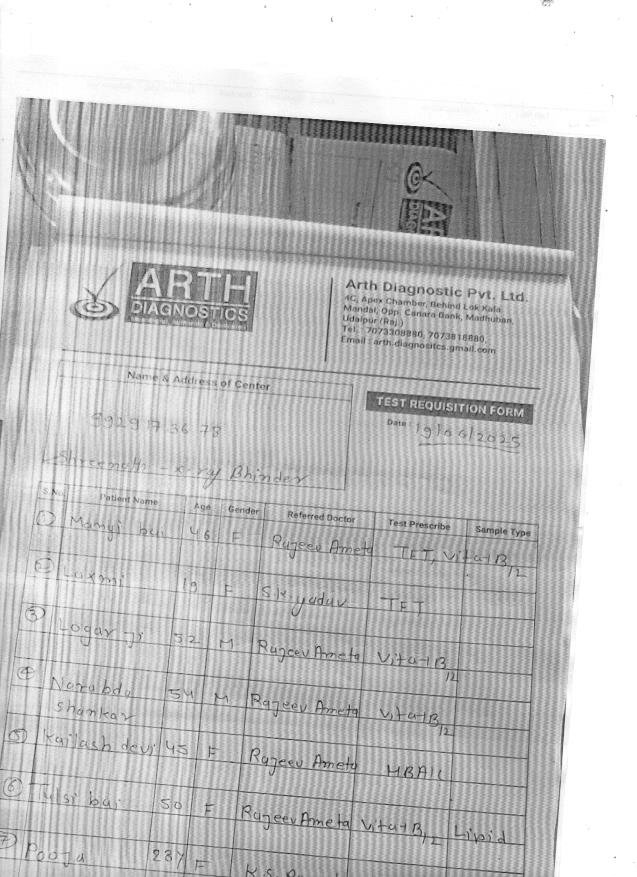 ARTH
DIAGNOSTICS
Arth Diagnostic Pvt. Ltd.
4C, Apex Chamber, Behind Lok Kala
Mandal, Opp. Canara Bank, Madhuban,
Udaipur (Raj.)
Tel.: 7073308880, 7073818880,
Email : arth.diagnositcs.gmail.com
Name & Address of Center
9929173678
Shreenath - x-ray Bhinder
TEST REQUISITION FORM
Date : 19/06/2025
S.No. Patient Name Age Gender Referred Doctor Test Prescribe Sample Type
1 Mangi bai 46 F Rajeev Ameta TFT, Vita-B12
2 Laxmi 19 F S.K. yadav TFT
3 Logar ji 52 M Rajeev Ameta Vita-B12
4 Narabda shankar 54 M Rajeev Ameta Vita-B12
5 Kailash devi 45 F Rajeev Ameta HBA1C
6 Tulsi bai 50 F Rajeev Ameta Vita-B12 Lipid
7 Pooja F K.S.